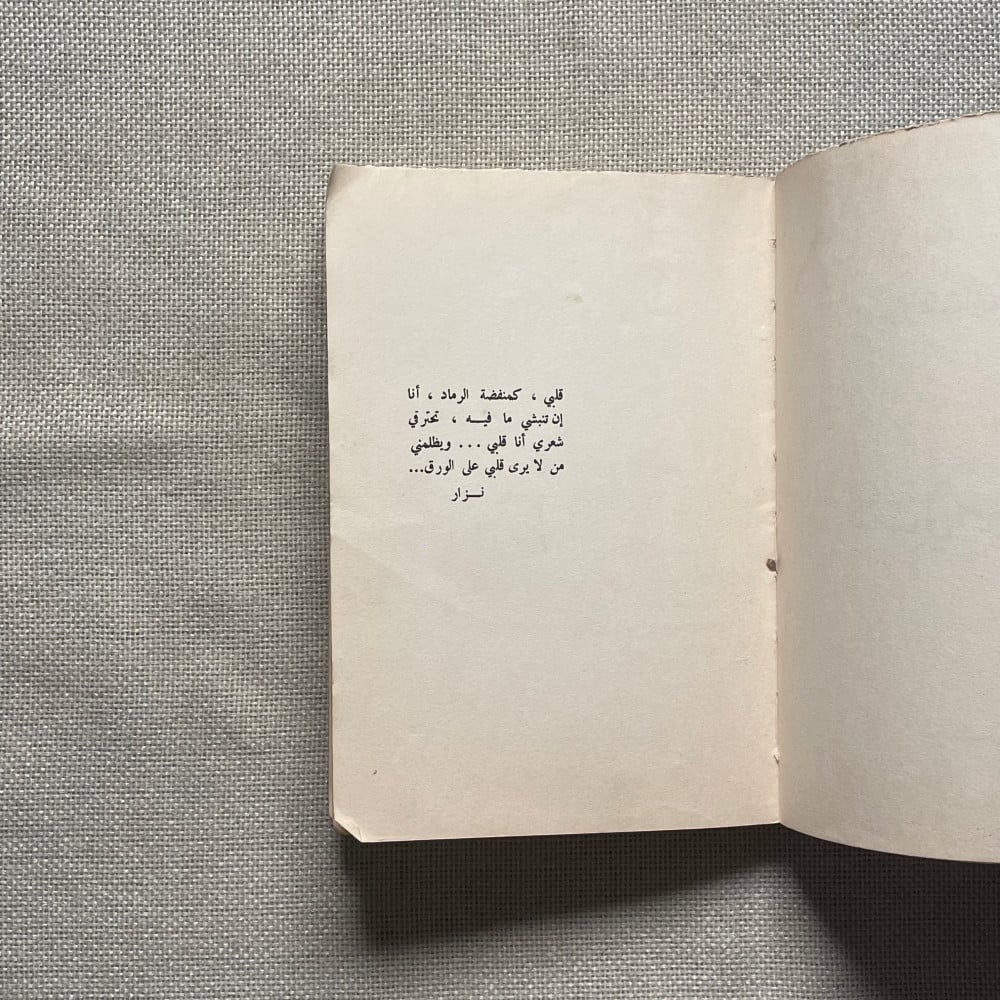 قلبي ، كمنفضة الرماد ، أنا
إن تنبشي ما فيـــه ، تحترقي
شعري أنا قلبي ... ويظلمني
من لا يرى قلبي على الورق...
نـــزار